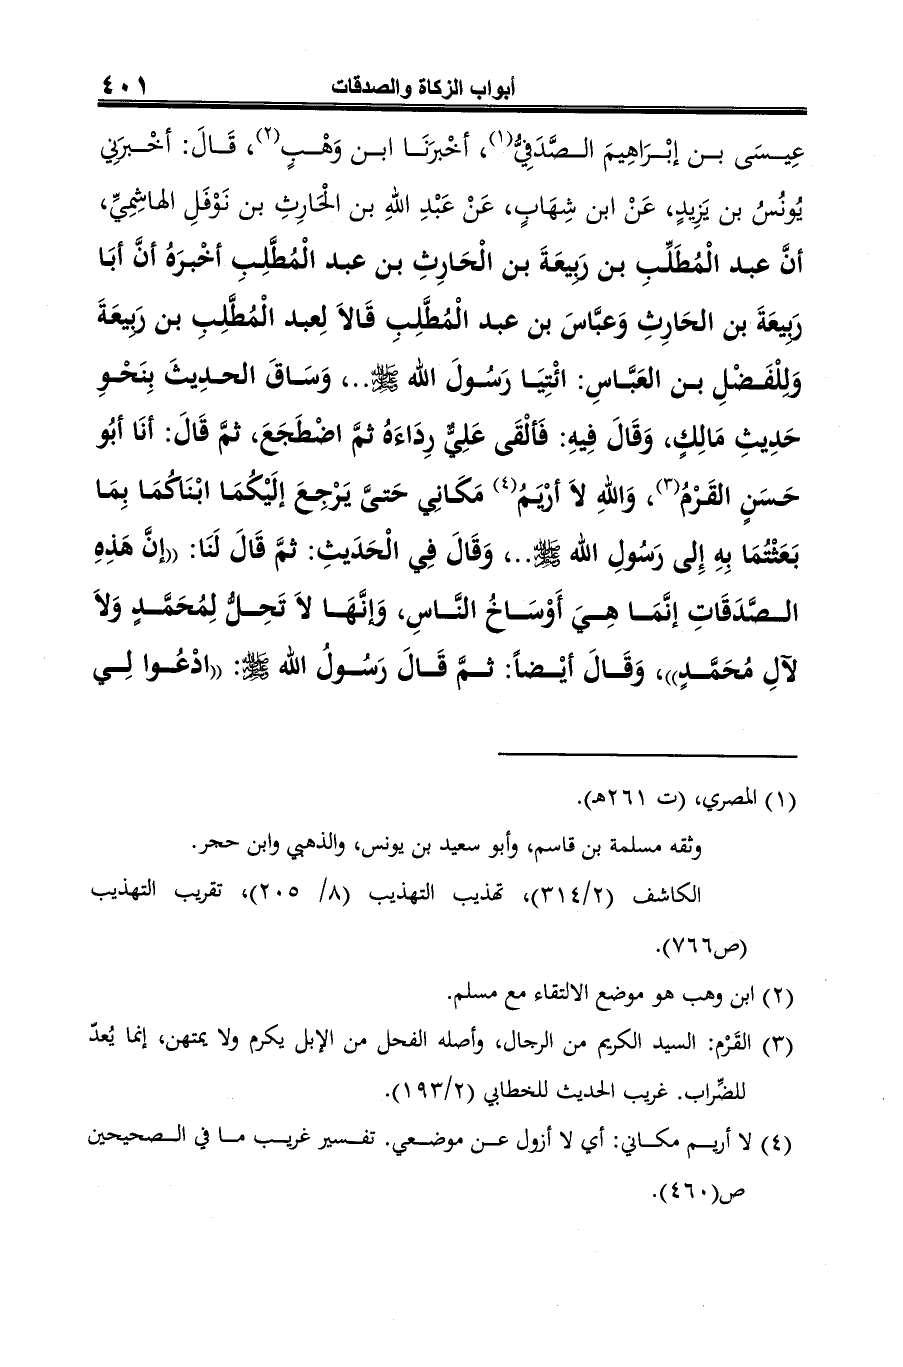 أبواب الزكاة والصدقات ٤٠١
عِيسَى بن إِبْرَاهِيمَ الصَّدَفِيُّ(١)، أَخْبَرَنَا ابن وَهْبٍ(٢)، قَالَ: أَخْبَرَنِي
يُونُسُ بن يَزِيدٍ، عَنْ ابن شِهَابٍ، عَنْ عَبْدِ اللهِ بن الحَارِثِ بن نَوْفَلِ الهَاشِمِيِّ،
أنَّ عبد الْمُطَلِّبِ بن رَبِيعَةَ بن الْحَارِثِ بن عبد الْمُطَّلِبِ أخْبرَهُ أنَّ أبَا
رَبِيعَةَ بن الحَارِثِ وَعبَّاسَ بن عبد الْمُطَّلِبِ قَالاَ لِعبد الْمُطَّلِبِ بن رَبِيعَةَ
وَلِلْفَضْلِ بن العَبَّاسِ: ائْتِيَا رَسُولَ الله ﷺ..، وَسَاقَ الحديثَ بِنَحْوِ
حَدِيثِ مَالِكٍ، وَقَالَ فِيهِ: فَألْقَى عَلِيٌّ رِدَاءَهُ ثمَّ اضْطَجَعَ، ثمَّ قَالَ: أنَا أبُو
حَسَنٍ القَرْمُ(٣)، وَاللهِ لاَ أرْيَمُ(٤) مَكَانِي حَتىَّ يَرْجِعَ إلَيْكُمَا ابْنَاكُمَا بِمَا
بَعَثْتُمَا بِهِ إِلى رَسُولِ الله ﷺ..، وَقَالَ فِي الْحَدَيثِ: ثمَّ قَالَ لَنَا: ((إنَّ هَذِهِ
الصَّدَقَاتِ إنَّمَا هِيَ أَوْسَاخُ النَّاسِ، وَإِنَّهَا لاَ تَحِلُّ لِمُحَمَّدٍ وَلاَ
لآلِ مُحَمَّدٍ))، وَقَالَ أيْضاً: ثمَّ قَالَ رَسُولُ الله ﷺ: ((ادْعُوا لِي
(١) المصري، (ت ٢٦١هـ).
وثقه مسلمة بن قاسم، وأبو سعيد بن يونس، والذهبي وابن حجر.
الكاشف (٣١٤/٢)، تهذيب التهذيب (٨/ ٢٠٥)، تقريب التهذيب
(ص٧٦٦).
(٢) ابن وهب هو موضع الالتقاء مع مسلم.
(٣) القَرْم: السيد الكريم من الرجال، وأصله الفحل من الإبل يكرم ولا يمتهن، إنما يُعدّ
للضِّراب. غريب الحديث للخطابي (١٩٣/٢).
(٤) لا أريم مكاني: أي لا أزول عن موضعي. تفسير غريب ما في الصحيحين
ص(٤٦٠).